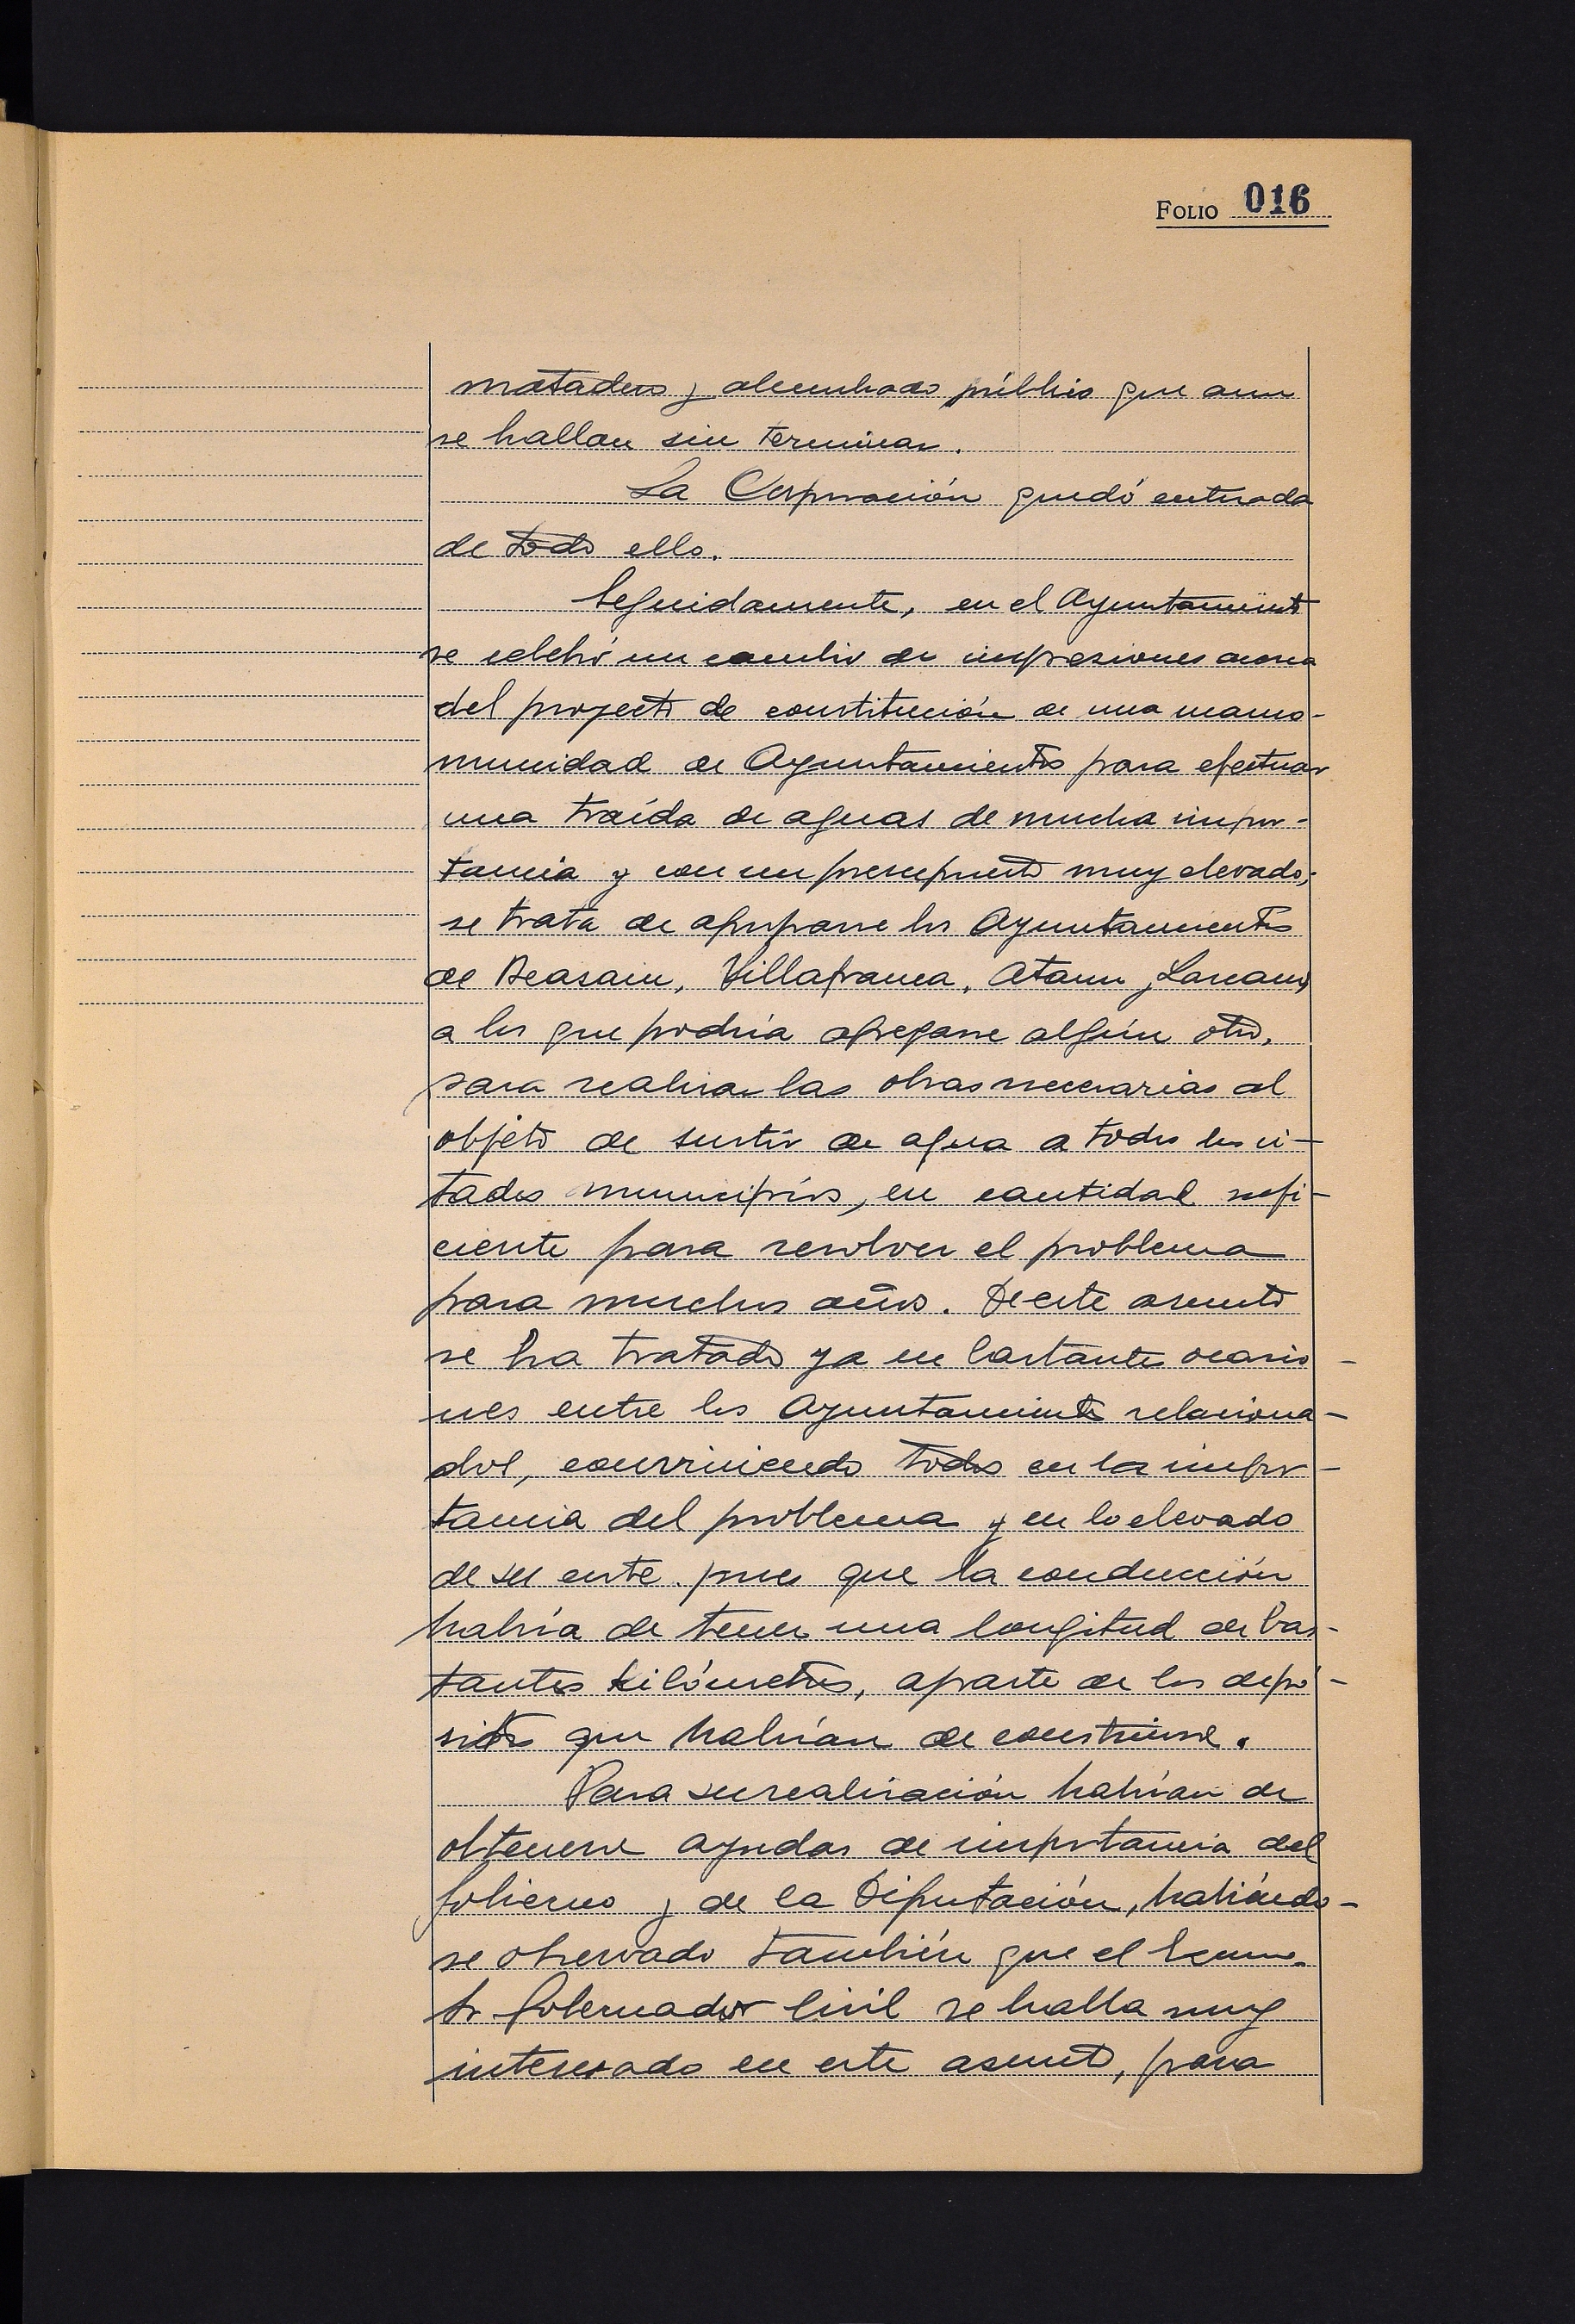 FOLIO 016
matadero y alumbrado público que aun
se hallan sin terminar.
La Corporación quedó enterada
de todo ello.
Seguidamente, en el Ayuntamiento
se celebró un cambio de impresiones acerca
del proyecto de constitución de una manco-
munidad de Ayuntamientos para efectuar
una traída de aguas de mucha impor-
tancia y con un presupuesto muy elevado;
se trata de agruparse los Ayuntamientos
de Beasain, Villafranca, Ataun y Lazcano,
a los que podría agregarse algún otro,
para realizar las obras necesarias al
objeto de surtir de agua a todos los ci-
tados municipios, en cantidad sufi-
ciente para resolver el problema
para muchos años. De este asunto
se ha tratado ya en bastantes ocasio-
nes entre los Ayuntamientos relaciona-
dos, conviniendo todos en la impor-
tancia del problema y en lo elevado
de su coste pues que la conducción
habría de tener una longitud de bas-
tantes kilómetros, aparte de los depó-
sitos que habrían de construirse.
Para su realización habrían de
obtenerse ayudas de importancia del
Gobierno y de la Diputación, habiéndo-
se observado también que el Excmo.
Sr. Gobernador Civil se halla muy
interesado en este asunto, para